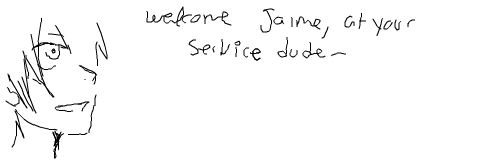 welcome Jaime, at your
service dude~